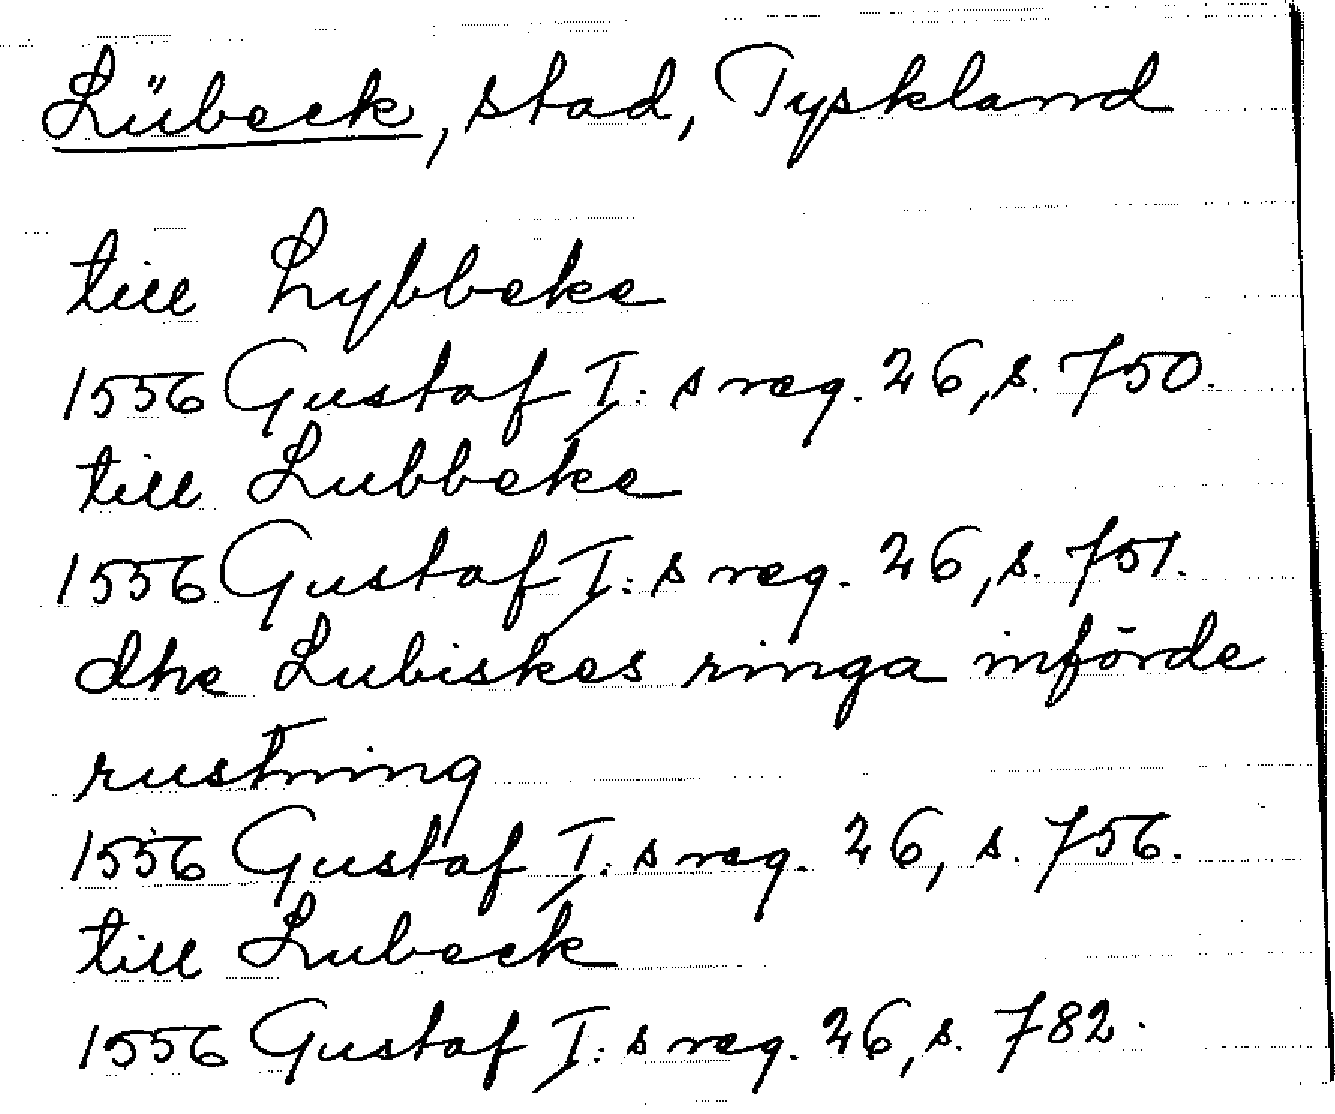 Lübeck, stad, Tyskland
till Lybbeke
1556 Gustaf I:s reg. 26, s. 750.
till Lubbeke
1556 Gustaf I:s reg. 26, s. 751.
dhe Lubiskes ringa införde
rustning
1556 Gustaf I:s reg. 26, s. 756.
till Lubeck
1556 Gustaf I:s reg. 26, s. 782.